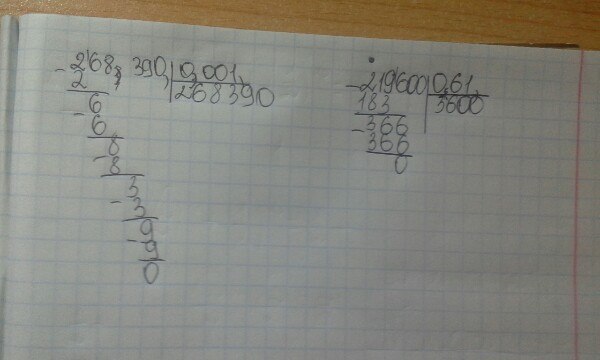 268,390, 0,001,
2 268390
6
6
8
8
3
3
9
9
0
219600 0,61,
183 3600
366
366
0